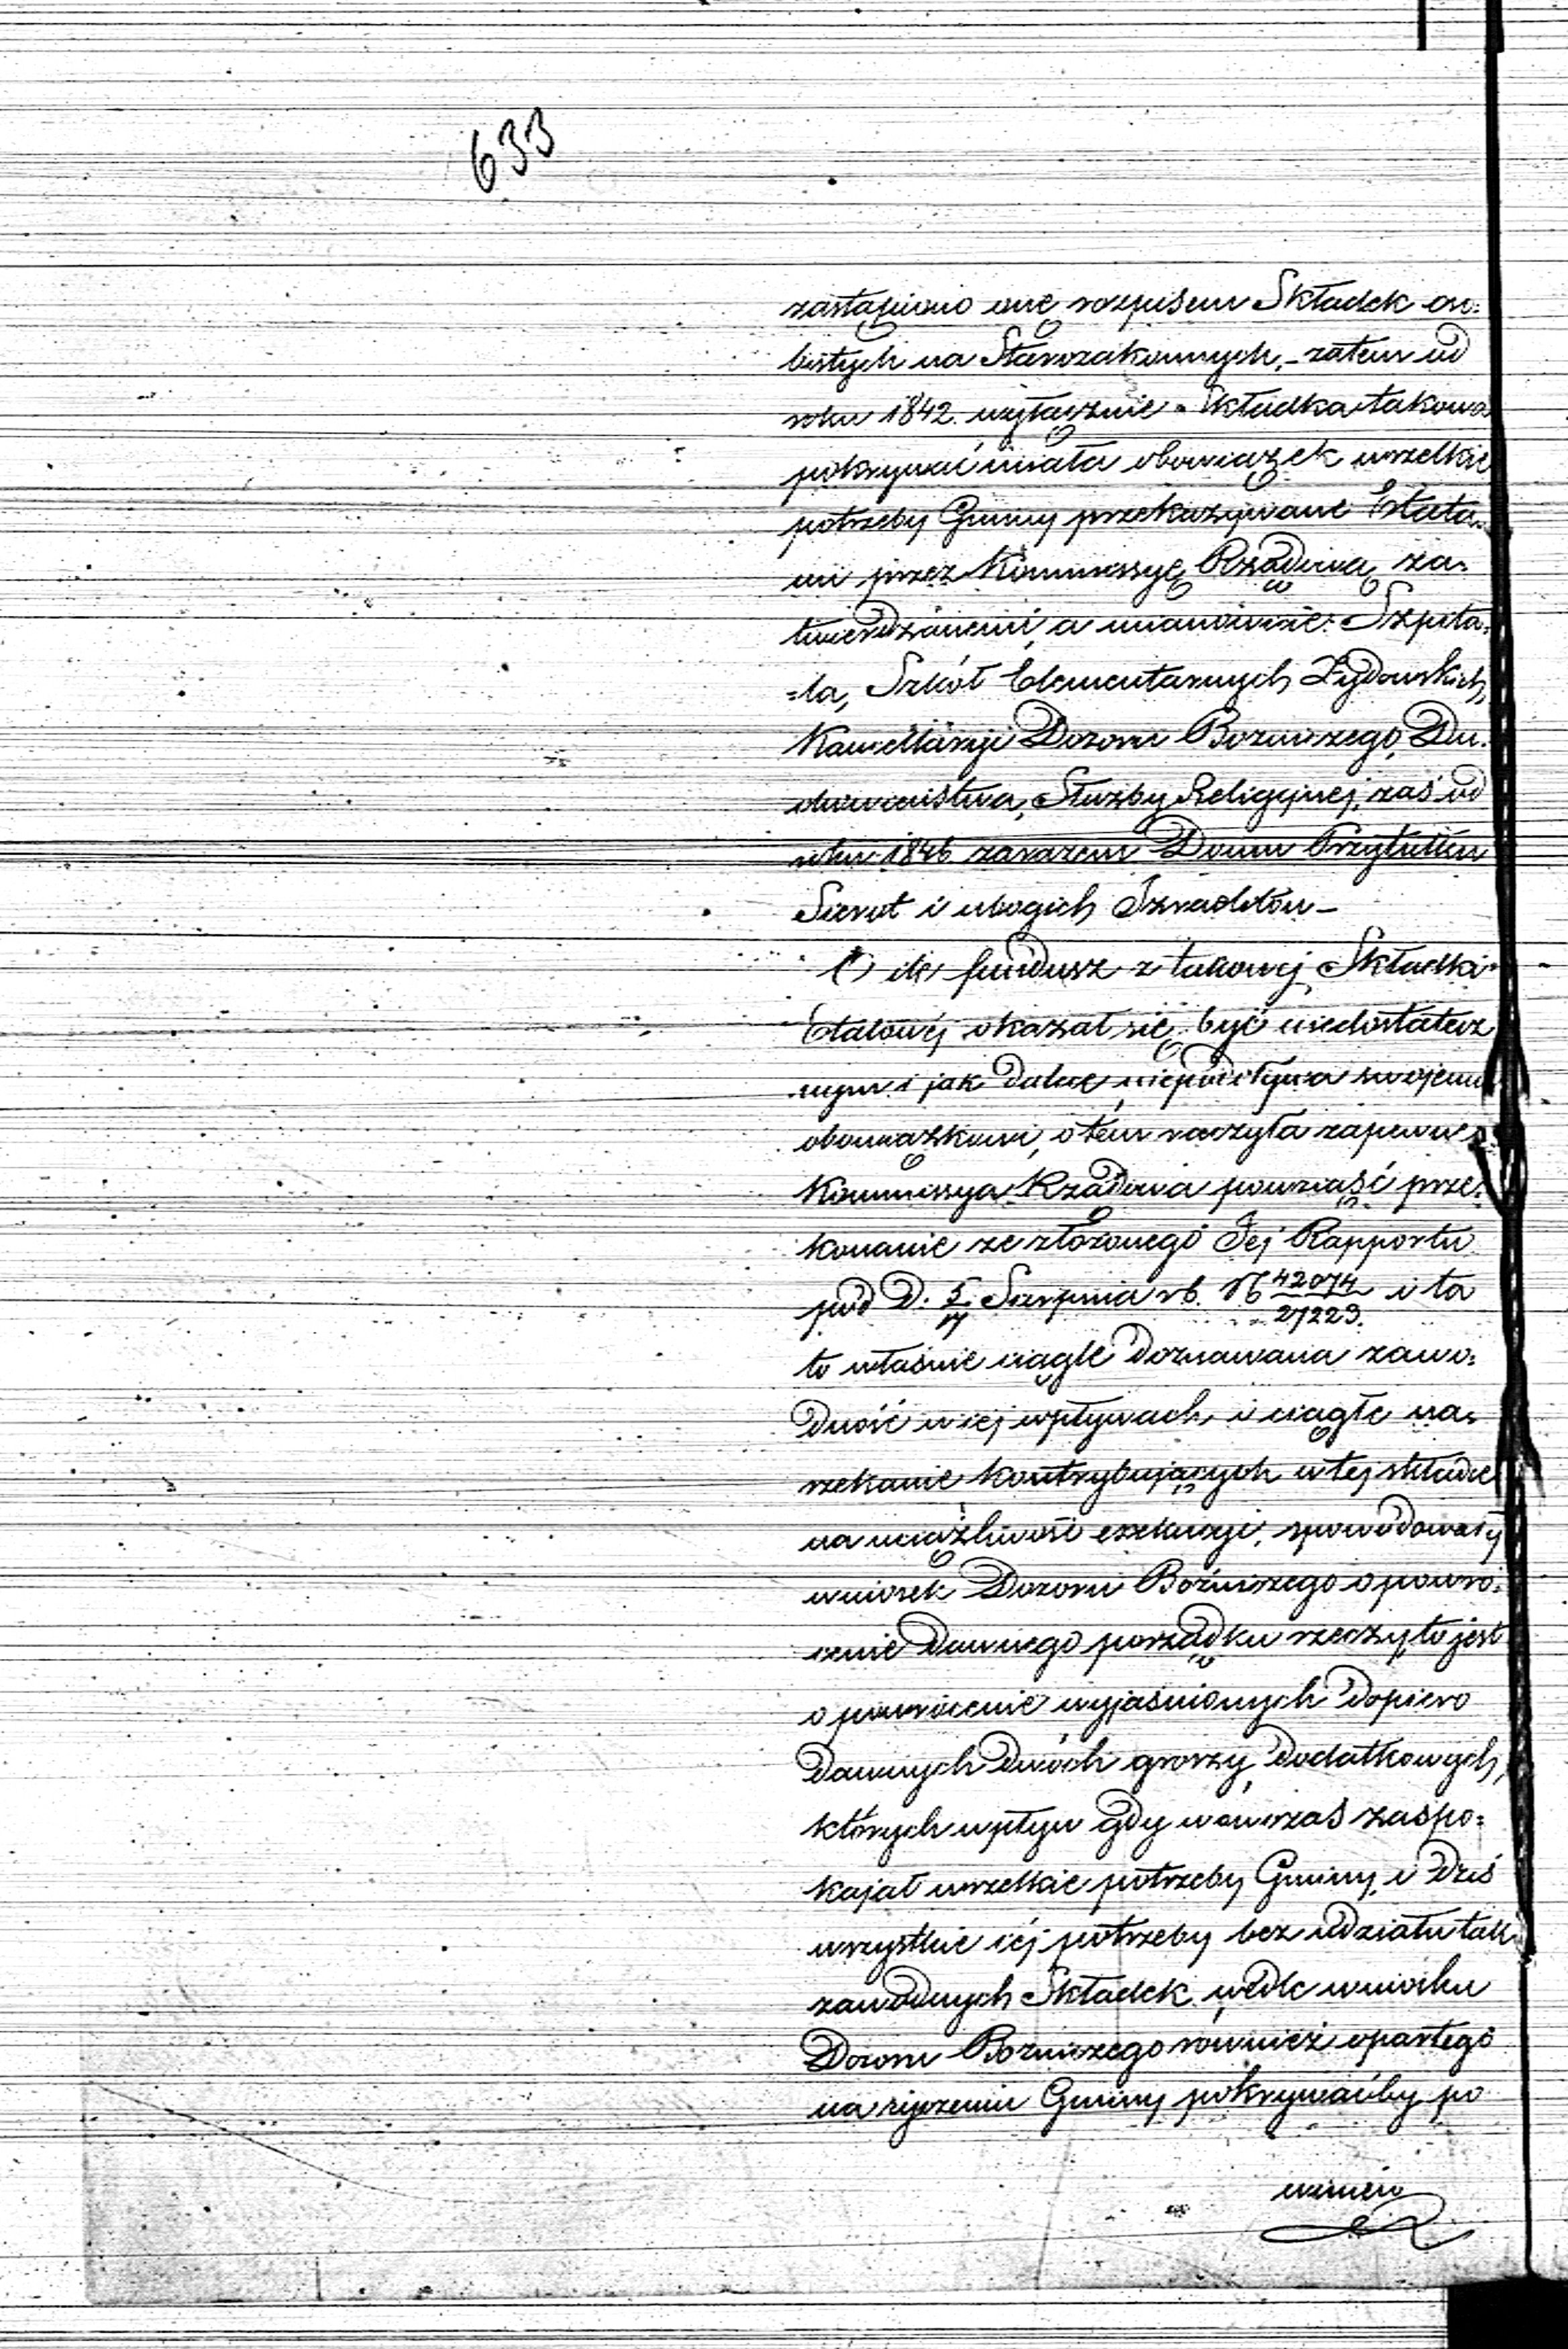 633
zastąpiono onę rozpisem Składek oso:
bistych na Starozakonnych, - zatem od
roku 1842. wyłącznie Składka takowa
pokrywać miała obowiązek wszelkie
potrzeby Gminy przekazywane Etata:
mi przez Kommissyę Rządową za:
twierdzonemi, a mianowicie: Szpita:
=la, Szkół Elementarnych Żydowskich,
Kancellaryi Dozoru Bozniczego, Du:
chowieństwa, Służby Religijnej, zaś od
roku 1846 zarazem Domu Przytułku
Sierot i ubogich Izraelitów -
O ile fundusz z takowej Składki
Etatowéj okazał się być niedostatecz
nym i jak dalece niepodoływa swojemu
obowiązkowi, o tém raczyła zapewne
Kommissya Rządowa powziąść prze:
konanie ze złożonego Jej Rapportu
pod D. 5/17 Sierpnia rb. N 42074/27223. i ta
to właśnie ciągle doznawana zawo:
dność w jej wpływach, i ciągłe na:
rzekanie kontrybujących w tej składce
na uciążliwość exekucyi, spowodowały
wniosek Dozoru Boźniczego o powró:
cenie dawnego porządku rzeczy, to jest
o powrócenie wyjaśnionych dopiero
dawnych dwóch groszy dodatkowych,
których wpływ gdy wówczas zaspo:
kajał wszelkie potrzeby Gminy, i dziś
wszystkie jéj potrzeby bez udziału tak
zawodnych Składek wedle wniosku
Dozoru Bozniczego również opartego
na życzeniu Gminy pokrywaćby po
winien